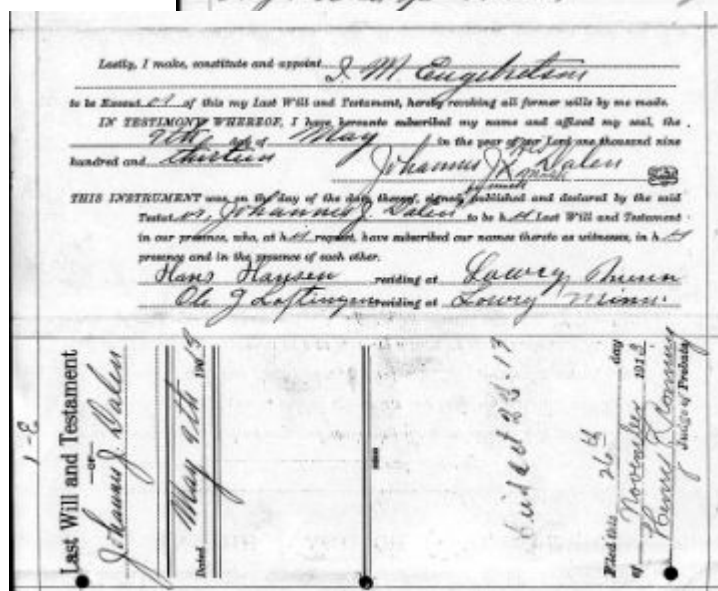 Lastly, I make, constitute and appoint I. M. Engebretson
to be Execut or of this my Last Will and Testament, hereby revoking all former wills by me made.
IN TESTIMONY WHEREOF, I have hereunto subscribed my name and affixed my seal, the
9th day of May in the year of our Lord one thousand nine
hundred and thirteen
his
Johannes J X Dalen
mark
THIS INSTRUMENT was on the day of the date thereof, signed, published and declared by the said
Testat or, Johannes J. Dalen to be h is Last Will and Testament
in our presence, who, at h is request, have subscribed our names thereto as witnesses, in h is
presence and in the presence of each other.
Hans Hansen residing at Lowry Minn
Ole J residing at Lowry Minn.
3-1
Last Will and Testament
—OF—
Johannes J. Dalen
Dated May 9th 19
Filed this 26th day
of November 1913
Henry
Judge of Probate